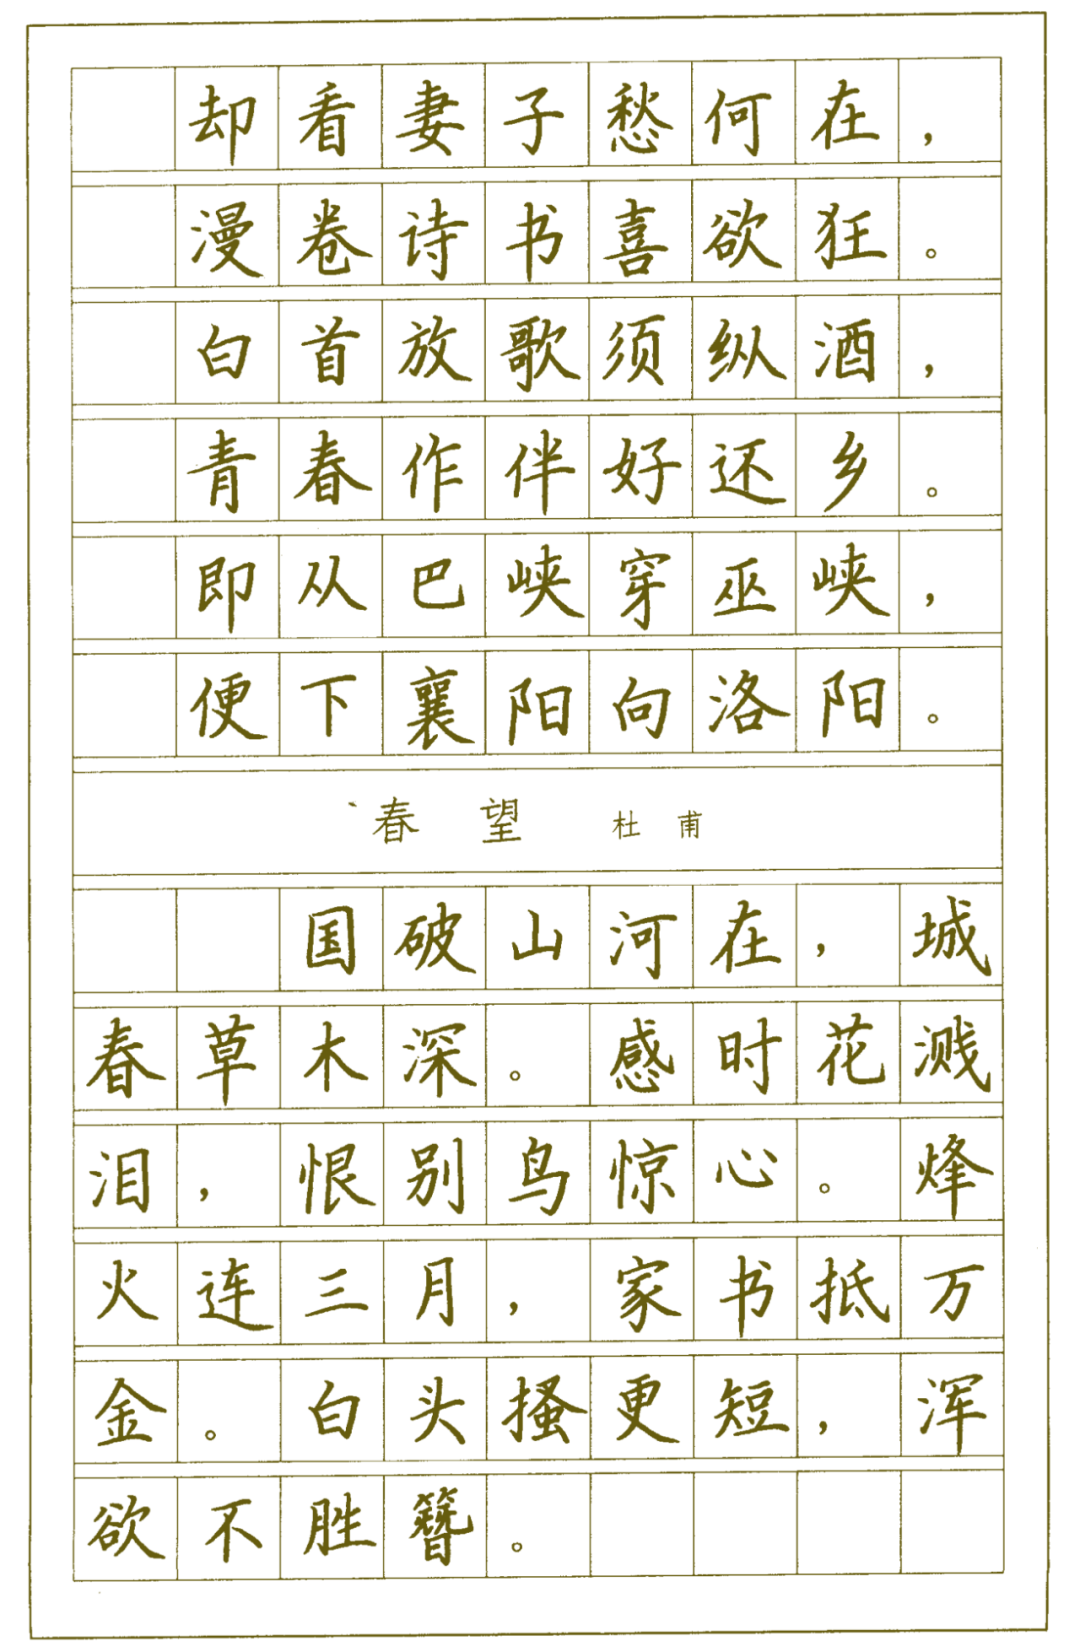 却看妻子愁何在，
漫卷诗书喜欲狂。
白首放歌须纵酒，
青春作伴好还乡。
即从巴峡穿巫峡，
便下襄阳向洛阳。
春望 杜甫
国破山河在，城
春草木深。感时花溅
泪，恨别鸟惊心。烽
火连三月，家书抵万
金。白头搔更短，浑
欲不胜簪。